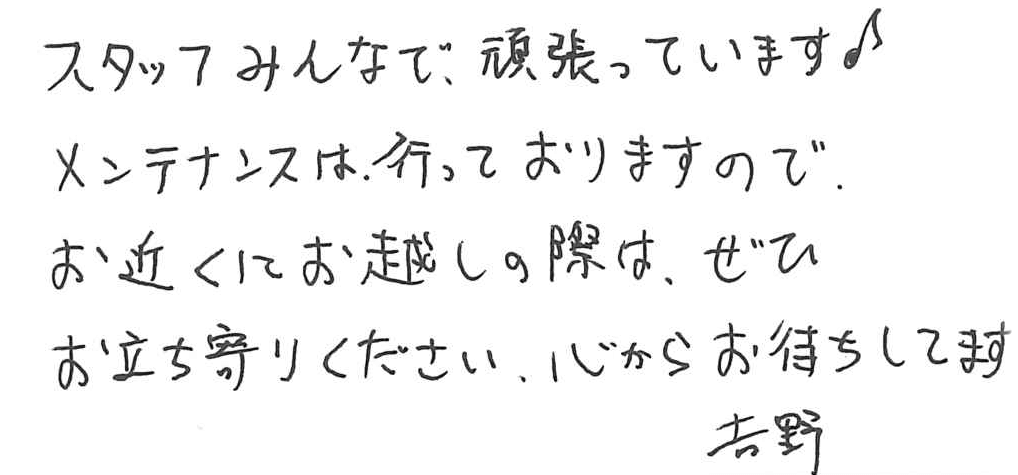 スタッフみんなで、頑張っています♪
メンテナンスは、行っておりますので、
お近くにお越しの際は、ぜひ
お立ち寄りください、心からお待ちしてます
吉野